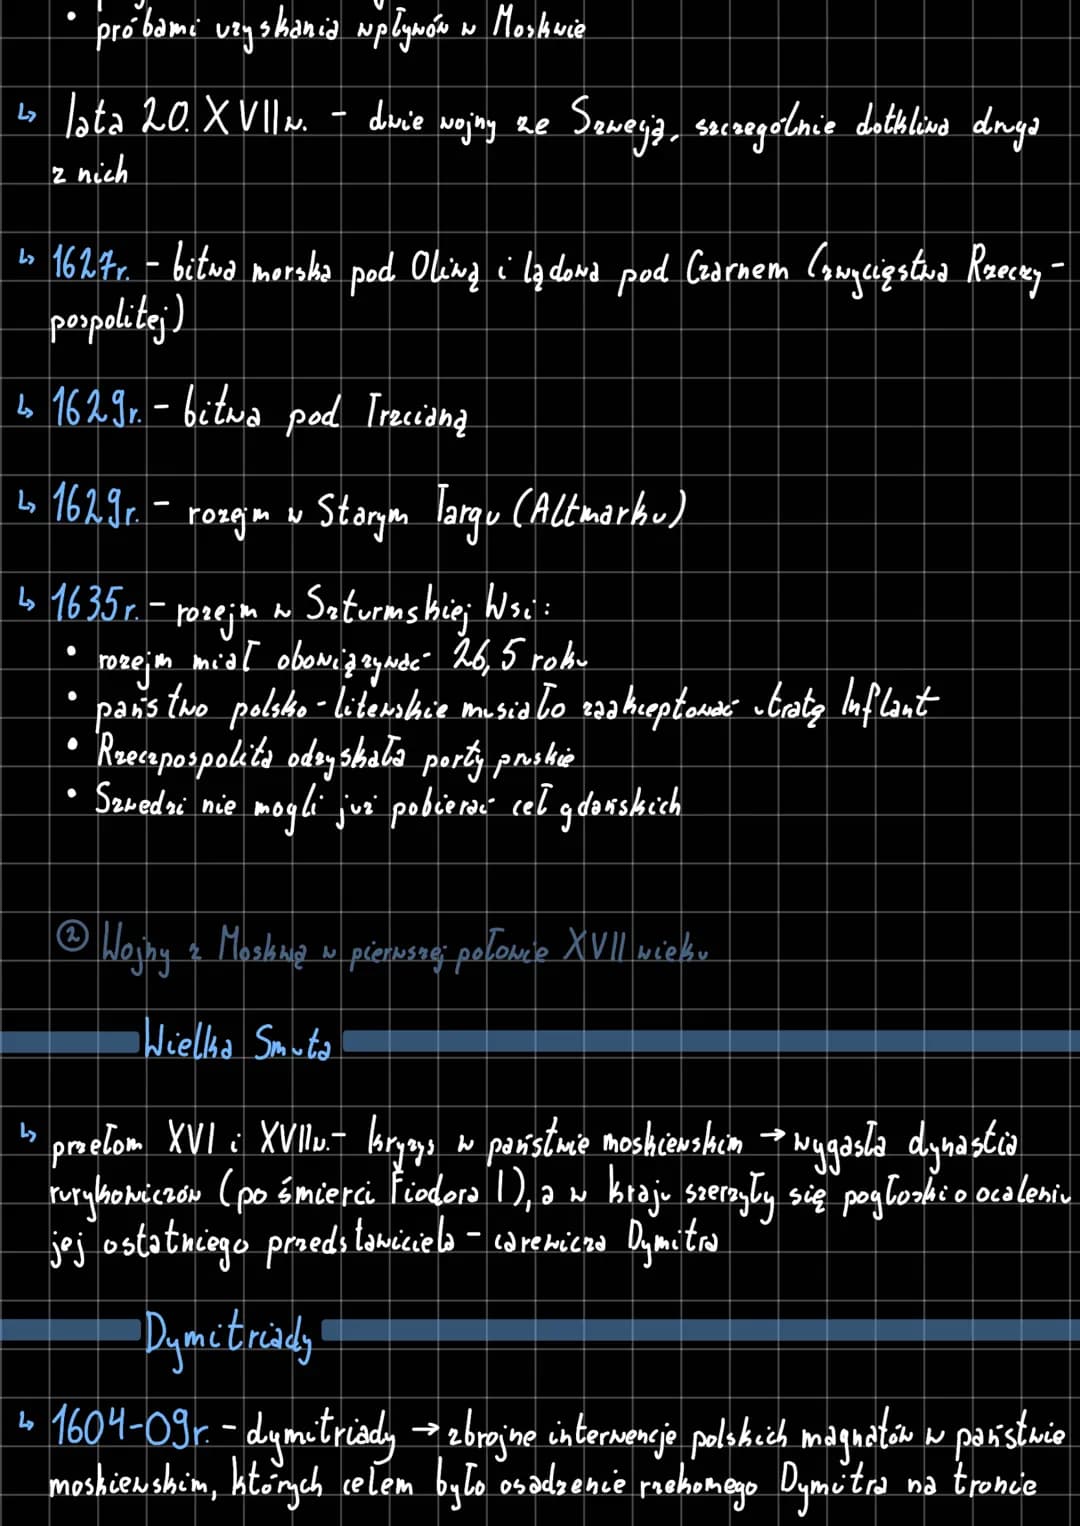 • próbami uzyskania wpływów w Moskwie
↳ lata 20. XVII w. - dwie wojny ze Szwecją, szczególnie dotkliwa druga
z nich
↳ 1627r. - bitwa morska pod Oliwą i lądowa pod Czarnem (zwycięstwa Rzeczy-
pospolitej)
↳ 1629r. - bitwa pod Trzcianą
↳ 1629r. - rozejm w Starym Targu (Altmarku)
↳ 1635r. - rozejm w Szturmskiej Wsi:
• rozejm miał obowiązywać 26,5 roku
• państwo polsko-litewskie musiało zaakceptować utratę Inflant
• Rzeczpospolita odzyskała porty pruskie
• Szwedzi nie mogli już pobierać ceł gdańskich
② Wojny z Moskwą w pierwszej połowie XVII wieku
Wielka Smuta
↳ przełom XVI i XVIIw. - kryzys w państwie moskiewskim → wygasła dynastia
rurykowiczów (po śmierci Fiodora I), a w kraju szerzyły się pogłoski o ocaleniu
jej ostatniego przedstawiciela - carewicza Dymitra
Dymitriady
↳ 1604-09r. - dymitriady → zbrojne interwencje polskich magnatów w państwie
moskiewskim, których celem było osadzenie rzekomego Dymitra na tronie